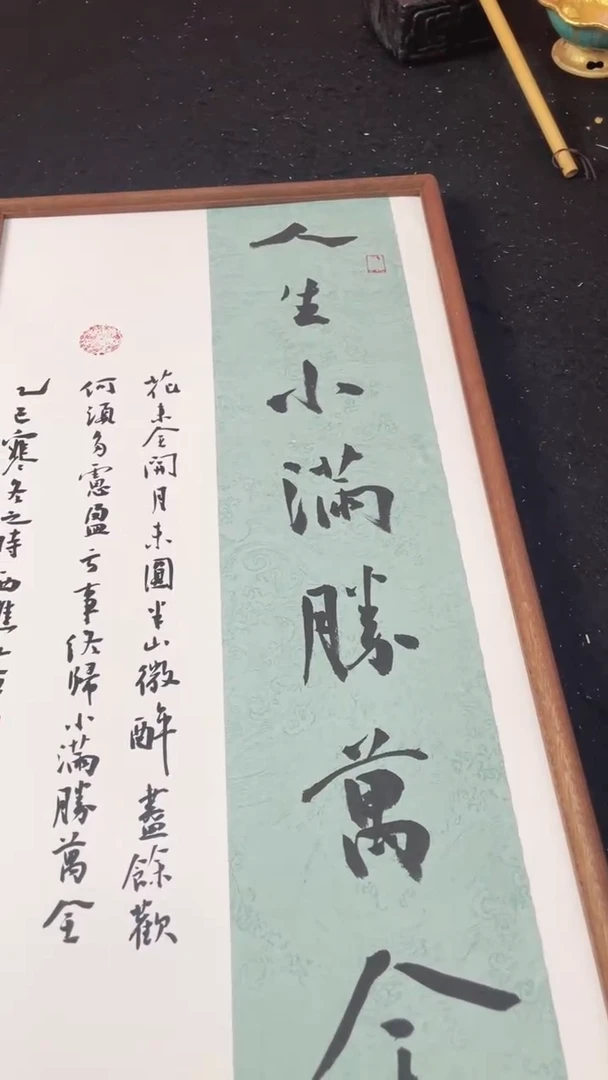 人生小滿勝萬全
花未全開月未圓半山微醉盡餘歡
何須多慮盈亏事終歸小滿勝萬全
乙巳寒冬之時西樵